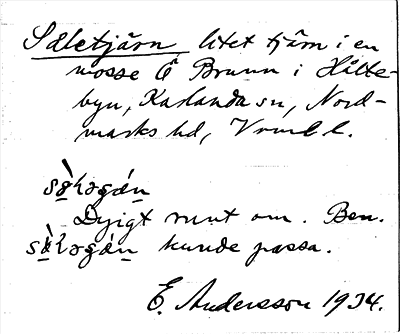 Sæletjärn, litet tjärn i en
mosse Ö Brunn i Hålte-
byn, Karlanda sn, Nord-
marks hd, Vrml l.
Dyigt runt om. Ben.
kunde passa.
E. Andersson 1934.